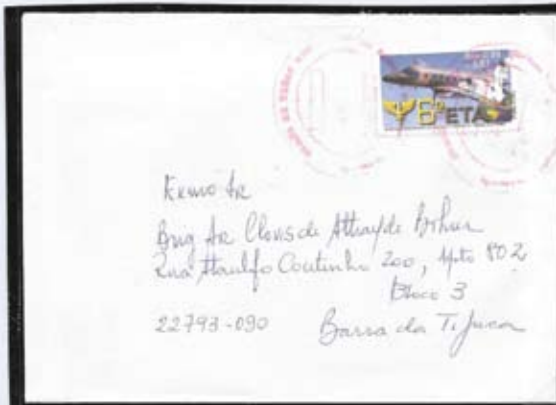 6º ETA
Exmo Sr
Brig Ar Clovis de Athayde Bohrer
Rua Ataulfo Coutinho 200, Apto 802
Bloco 3
22793-090 Barra da Tijuca